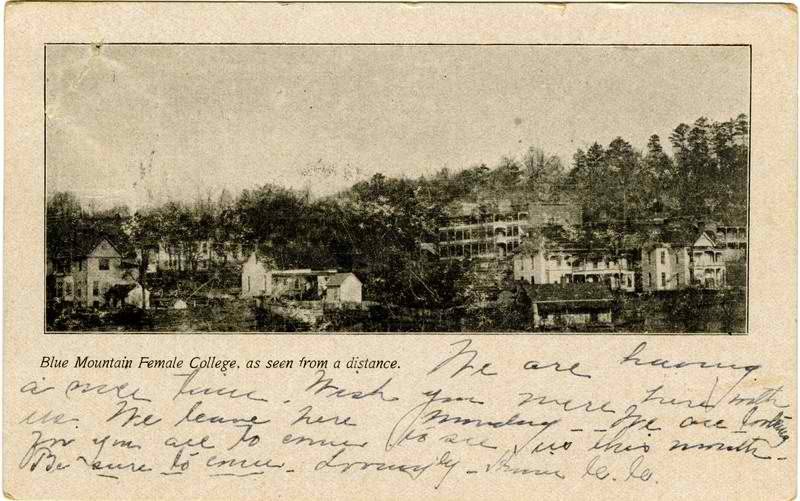 Blue Mountain Female College, as seen from a distance.
We are having
a nice time. Wish you were here with
us. We leave here Monday - We are looking
for you all to come to see us this month -
Be sure to come - Lovingly -